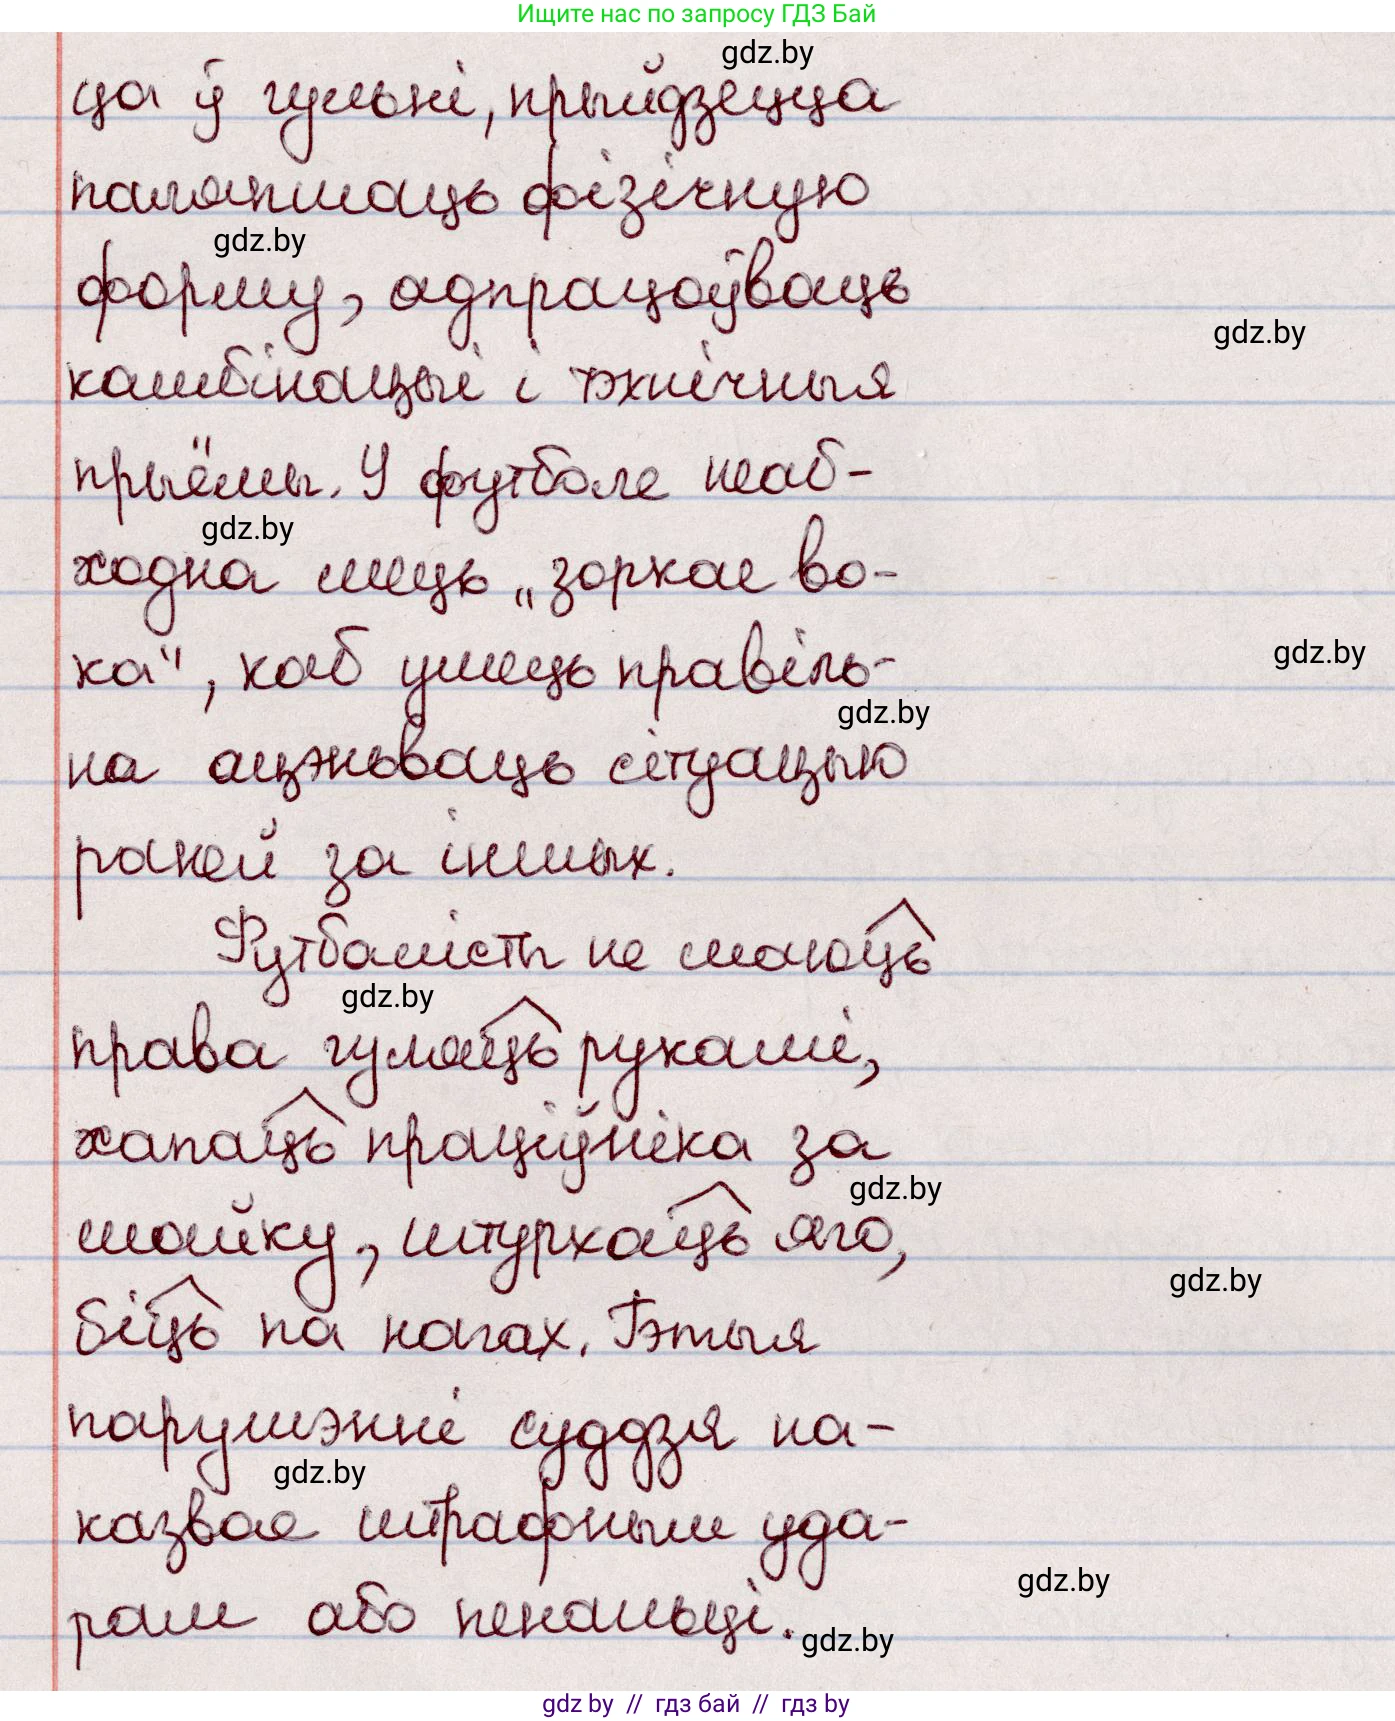 Ищите нас по запросу ГДЗ Бай
gdz.by
ца ў гульні, прыйдзецца
паляпшаць фізічную
gdz.by
форму, адпрацоўваць
gdz.by
камбінацыі і тэхнічныя
прыёмы. У футболе неаб-
gdz.by
ходна мець „зоркае во-
ка“, каб умець правіль-
gdz.by
gdz.by
на ацэньваць сітуацыю
раней за іншых.
Футбалісты не маюць
gdz.by
права гуляць рукамі,
хапаць праціўніка за
gdz.by
майку, штурхаць яго,
gdz.by
біць па нагах. Гэтыя
парушэнні суддзя на-
gdz.by
казвае штрафным уда-
gdz.by
рам або пенальці.
gdz.by
gdz by // гдз бай // гдз by